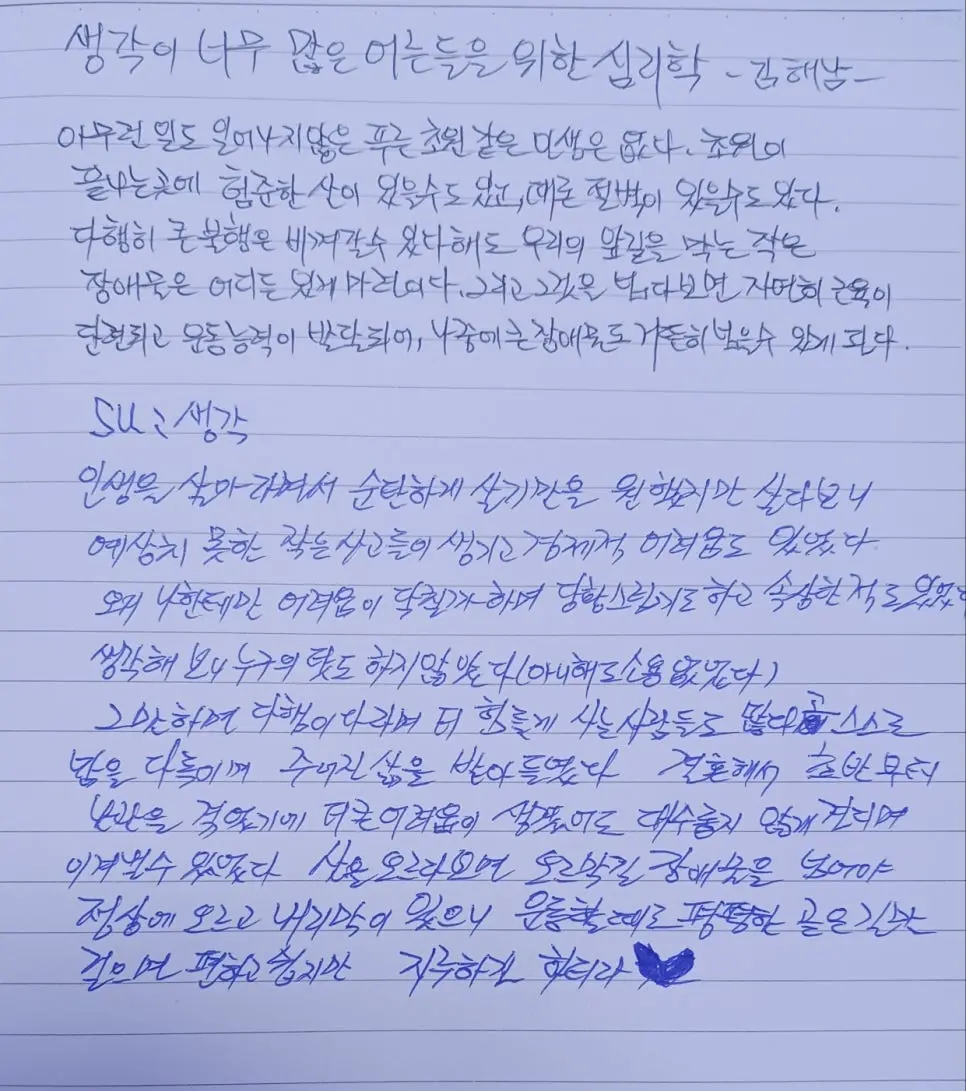 생각이 너무 많은 어른들을 위한 심리학 - 김혜남 -
아무런 일도 일어나지않은 푸른 초원 같은 인생은 없다. 초원이
끝나는곳에 험준한 산이 있을수도 있고, 때론 절벽이 있을수도 있다.
다행히 큰 불행은 비껴갈수 있다해도 우리의 앞길을 막는 작은
장애물은 어디든 있게 마련이다. 그리고 그것을 넘다보면 자연히 근육이
단련되고 운동능력이 발달되어, 나중에 큰 장애물도 거뜬히 넘을수 있게 된다.
SU; 생각
인생을 살아가면서 순탄하게 살기만을 원했지만 살다보니
예상치 못한 작은 사고들이 생기고 경제적 어려움도 있었다
왜 나한테만 어려움이 닥칠까하며 당황스럽기도 하고 속상한 적도 있었다
생각해 보니 누구의 탓도 하지않았다(아니해도 소용없었다)
그만하면 다행이다라며 더 힘들게 사는사람들도 많다 스스로
맘을 다독이며 주어진 삶을 받아들였다 결혼해서 초반부터
난관을 겪었기에 더큰 어려움이 생겼어도 대수롭지 않게 견디며
이겨낼수 있었다 산을 오르다보면 오르막길 장애물을 넘어야
정상에 오르고 내리막이 있으니 운동할때도 평평한 골은 길만
걸으면 편하고 쉽지만 지루하긴 할터라